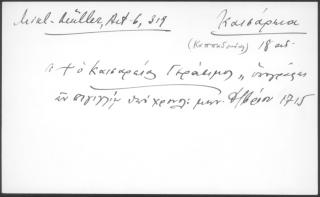 Mikl-Müller, Act. 6, 319
Καισάρεια
(Καππαδοκίας) 18 αι.
+ ὁ Καισαρείας Γεράσιμος, ὑπογράφει
ἐν σιγιλλίῳ ὑπὸ χρονολ. μην. 1715